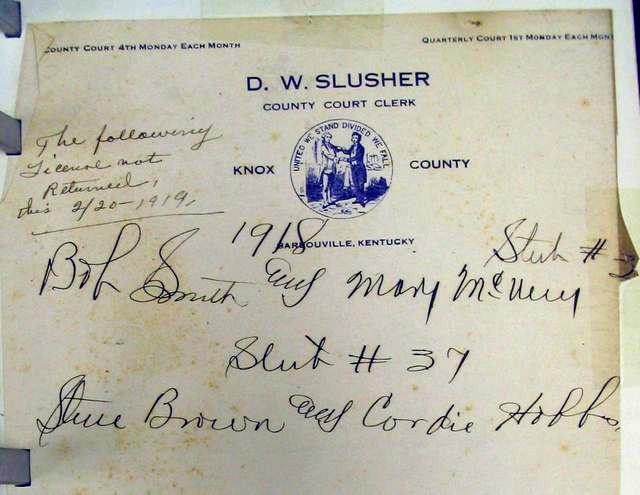 COUNTY COURT 4TH MONDAY EACH MONTH
QUARTERLY COURT 1ST MONDAY EACH MON
D. W. SLUSHER
COUNTY COURT CLERK
UNITED WE STAND DIVIDED WE FALL
KNOX COUNTY
BARBOUVILLE, KENTUCKY
The following
License not
Returned,
this 2/20-1919,
1918
Stub # 3
Bob Smith and Mary
Stub # 37
Steve Brown and Cordie Hobbs,